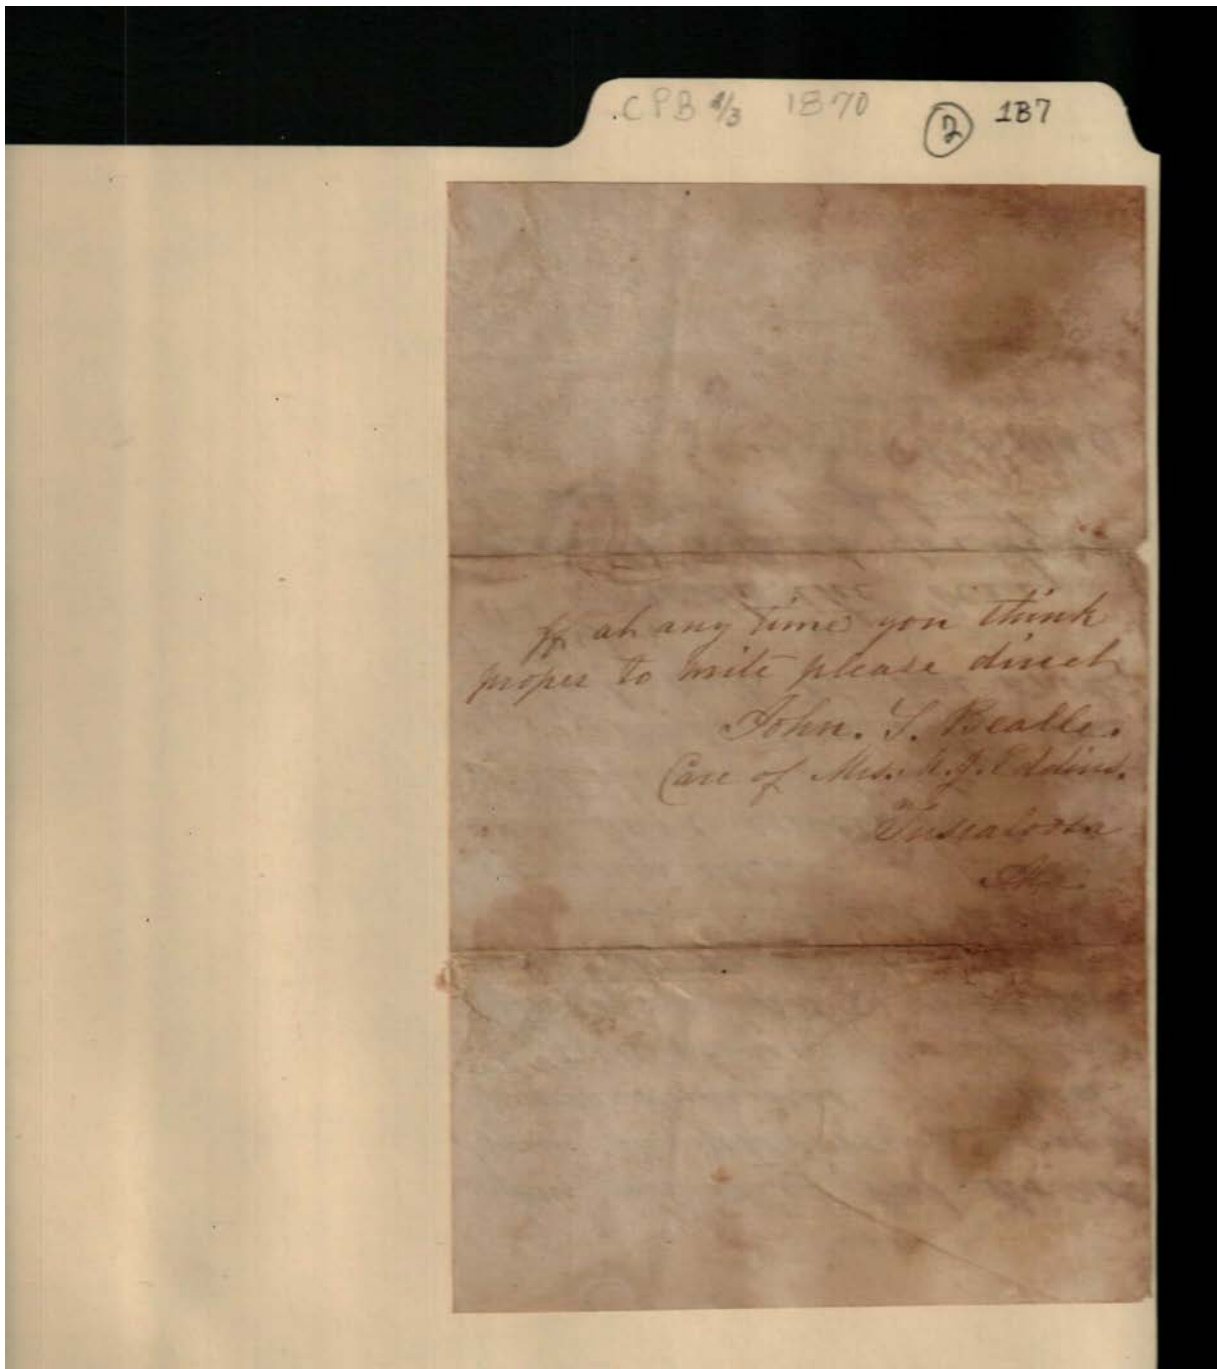 CPB 4/3 1870 2 1B7
If at any time you think
proper to write please direct
John. S. Bealle.
Care of Mrs. A. J. Eddins.
Tuscaloosa
Ala